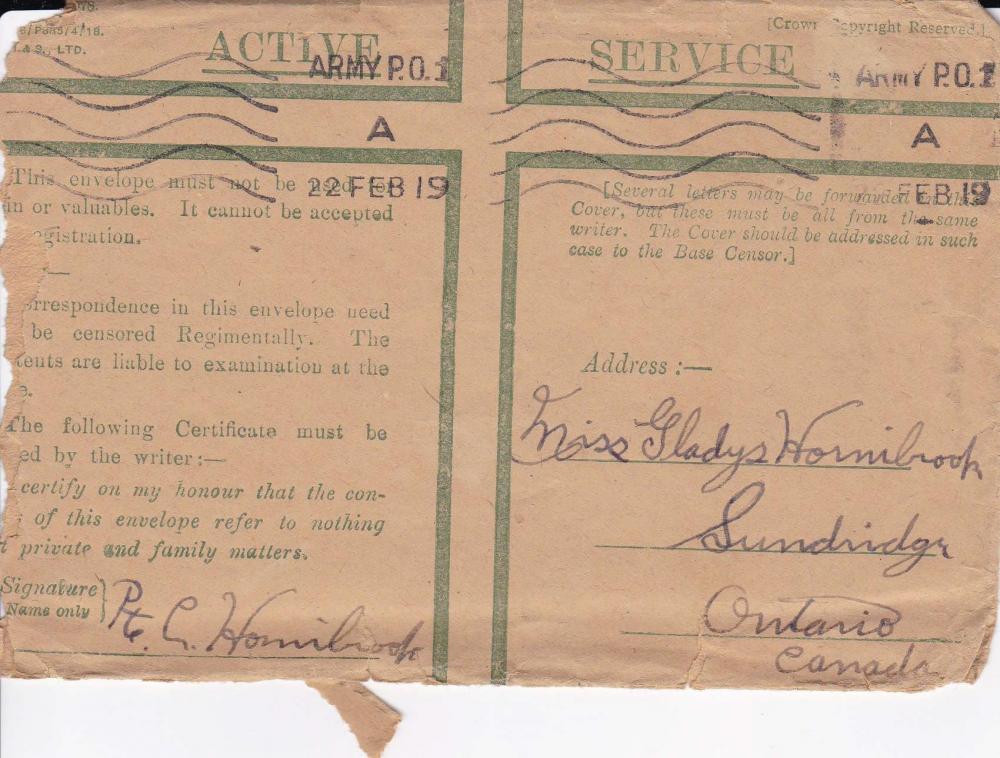 ACTIVE SERVICE
[Crown Copyright Reserved.]
& S., LTD.
ARMY P.O.1
A
22 FEB 19
ARMY P.O.1
A
FEB 19
This envelope must not be used for
in or valuables. It cannot be accepted
egistration.
orrespondence in this envelope need
be censored Regimentally. The
tents are liable to examination at the
e.
The following Certificate must be
ed by the writer:—
certify on my honour that the con-
of this envelope refer to nothing
t private and family matters.
Signature
Name only
Pte. C. Hornibrook
[Several letters may be forwarded in this
Cover, but these must be all from the same
writer. The Cover should be addressed in such
case to the Base Censor.]
Address :—
Miss Gladys Hornibrook
Sundridge
Ontario
Canada